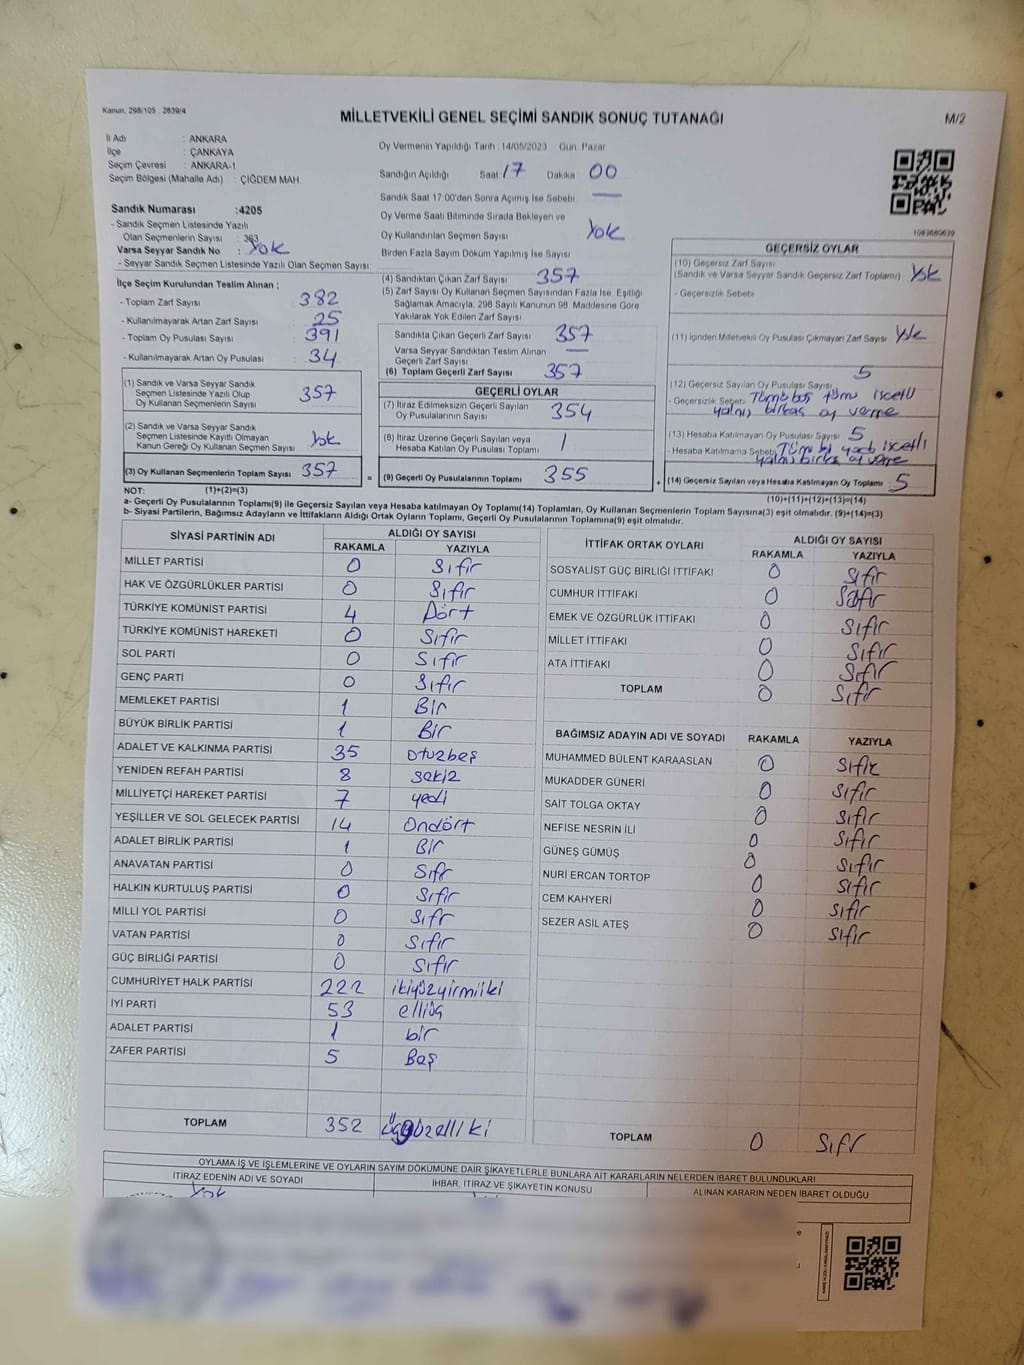 Kanun: 298/105 : 2839/4
MİLLETVEKİLİ GENEL SEÇİMİ SANDIK SONUÇ TUTANAĞI
M/2
İl Adı : ANKARA
İlçe : ÇANKAYA
Seçim Çevresi : ANKARA-1
Seçim Bölgesi (Mahalle Adı) : ÇİĞDEM MAH.
Oy Vermenin Yapıldığı Tarih :14/05/2023 Gün: Pazar
Sandığın Açıldığı Saat 17 Dakika 00
Sandık Saat 17:00'den Sonra Açımış İse Sebebi —
Oy Verme Saati Bitiminde Sırada Bekleyen ve
Oy Kullandırılan Seçmen Sayısı Yok
Birden Fazla Sayım Döküm Yapılmış İse Sayısı
Sandık Numarası :4205
- Sandık Seçmen Listesinde Yazılı
Olan Seçmenlerin Sayısı : 363
Varsa Seyyar Sandık No : Yok
- Seyyar Sandık Seçmen Listesinde Yazılı Olan Seçmen Sayısı:
İlçe Seçim Kurulundan Teslim Alınan ;
- Toplam Zarf Sayısı 382
- Kullanılmayarak Artan Zarf Sayısı 25
- Toplam Oy Pusulası Sayısı 391
- Kullanılmayarak Artan Oy Pusulası 34
(1) Sandık ve Varsa Seyyar Sandık
Seçmen Listesinde Yazılı Olup
Oy Kullanan Seçmenlerin Sayısı 357
(2) Sandık ve Varsa Seyyar Sandık
Seçmen Listesinde Kayıtlı Olmayan
Kanun Gereği Oy Kullanan Seçmen Sayısı Yok
(3) Oy Kullanan Seçmenlerin Toplam Sayısı 357 =
(4) Sandıktan Çıkan Zarf Sayısı 357
(5) Zarf Sayısı Oy Kullanan Seçmen Sayısından Fazla İse, Eşitliği
Sağlamak Amacıyla; 298 Sayılı Kanunun 98. Maddesine Göre
Yakılarak Yok Edilen Zarf Sayısı
Sandıkta Çıkan Geçerli Zarf Sayısı 357
Varsa Seyyar Sandıktan Teslim Alınan
Geçerli Zarf Sayısı —
(6) Toplam Geçerli Zarf Sayısı 357
GEÇERLİ OYLAR
(7) İtiraz Edilmeksizin Geçerli Sayılan
Oy Pusulalarının Sayısı 354
(8) İtiraz Üzerine Geçerli Sayılan veya
Hesaba Katılan Oy Pusulası Toplamı 1
(9) Geçerli Oy Pusulalarının Toplamı 355 +
1089680639
GEÇERSİZ OYLAR
(10) Geçersiz Zarf Sayısı
(Sandık ve Varsa Seyyar Sandık Geçersiz Zarf Toplamı) Yok
- Geçersizlik Sebebi
(11) İçinden Milletvekili Oy Pusulası Çıkmayan Zarf Sayısı Yok
(12) Geçersiz Sayılan Oy Pusulası Sayısı 5
- Geçersizlik Sebebi
(13) Hesaba Katılmayan Oy Pusulası Sayısı 5
- Hesaba Katılmama Sebebi
(14) Geçersiz Sayılan veya Hesaba Katılmayan Oy Toplamı 5
NOT: (1)+(2)=(3)
(10)+(11)+(12)+(13)=(14)
a- Geçerli Oy Pusulalarının Toplamı(9) ile Geçersiz Sayılan veya Hesaba katılmayan Oy Toplamı(14) Toplamları, Oy Kullanan Seçmenlerin Toplam Sayısına(3) eşit olmalıdır. (9)+(14)=(3)
b- Siyasi Partilerin, Bağımsız Adayların ve İttifakların Aldığı Ortak Oyların Toplamı, Geçerli Oy Pusulalarının Toplamına(9) eşit olmalıdır.
SİYASİ PARTİNİN ADI ALDIĞI OY SAYISI
RAKAMLA YAZIYLA
MİLLET PARTİSİ 0 Sıfır
HAK VE ÖZGÜRLÜKLER PARTİSİ 0 Sıfır
TÜRKİYE KOMÜNİST PARTİSİ 4 Dört
TÜRKİYE KOMÜNİST HAREKETİ 0 Sıfır
SOL PARTİ 0 Sıfır
GENÇ PARTİ 0 Sıfır
MEMLEKET PARTİSİ 1 Bir
BÜYÜK BİRLİK PARTİSİ 1 Bir
ADALET VE KALKINMA PARTİSİ 35 otuzbeş
YENİDEN REFAH PARTİSİ 8 sekiz
MİLLİYETÇİ HAREKET PARTİSİ 7 yedi
YEŞİLLER VE SOL GELECEK PARTİSİ 14 Ondört
ADALET BİRLİK PARTİSİ 1 Bir
ANAVATAN PARTİSİ 0 Sıfr
HALKIN KURTULUŞ PARTİSİ 0 Sıfır
MİLLİ YOL PARTİSİ 0 Sıfr
VATAN PARTİSİ 0 Sıfır
GÜÇ BİRLİĞİ PARTİSİ 0 Sıfır
CUMHURİYET HALK PARTİSİ 222 ikiyüzyirmiiki
İYİ PARTİ 53 elliüç
ADALET PARTİSİ 1 bir
ZAFER PARTİSİ 5 Beş
TOPLAM 352 üçyüzelliiki
İTTİFAK ORTAK OYLARI ALDIĞI OY SAYISI
RAKAMLA YAZIYLA
SOSYALİST GÜÇ BİRLİĞİ İTTİFAKI 0 Sıfır
CUMHUR İTTİFAKI 0 Sıfır
EMEK VE ÖZGÜRLÜK İTTİFAKI 0 Sıfır
MİLLET İTTİFAKI 0 Sıfır
ATA İTTİFAKI 0 Sıfır
TOPLAM 0 Sıfır
BAĞIMSIZ ADAYIN ADI VE SOYADI RAKAMLA YAZIYLA
MUHAMMED BÜLENT KARAASLAN 0 Sıfır
MUKADDER GÜNERİ 0 Sıfır
SAİT TOLGA OKTAY 0 Sıfır
NEFİSE NESRİN İLİ 0 Sıfır
GÜNEŞ GÜMÜŞ 0 Sıfır
NURİ ERCAN TORTOP 0 Sıfır
CEM KAHYERİ 0 Sıfır
SEZER ASİL ATEŞ 0 Sıfır
TOPLAM 0 Sıfr
OYLAMA İŞ VE İŞLEMLERİNE VE OYLARIN SAYIM DÖKÜMÜNE DAİR ŞİKAYETLERLE BUNLARA AİT KARARLARIN NELERDEN İBARET BULUNDUKLARI
İTİRAZ EDENİN ADI VE SOYADI İHBAR, İTİRAZ VE ŞİKAYETİN KONUSU ALINAN KARARIN NEDEN İBARET OLDUĞU
Yok